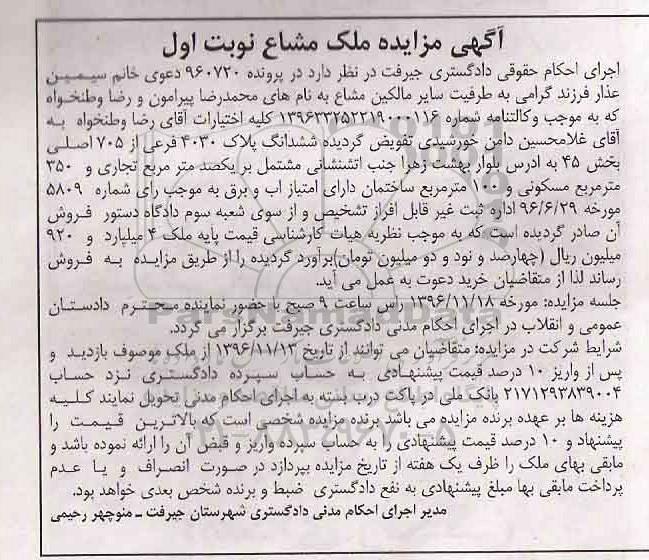 آگهی مزایده ملک مشاع نوبت اول
اجرای احکام حقوقی دادگستری جیرفت در نظر دارد در پرونده ۹۶۰۷۲۰ دعوی خانم سیمین
عذار فرزند گرامی به طرفیت سایر مالکین مشاع به نام های محمدرضا پیرامون و رضا وطنخواه
که به موجب وکالتنامه شماره ۱۳۹۶۳۳۲۵۲۲۱۹۰۰۰۱۱۶ کلیه اختیارات آقای رضا وطنخواه به
آقای غلامحسین دامن خورشیدی تفویض گردیده ششدانگ پلاک ۴۰۳۰ فرعی از ۷۰۵ اصلی
بخش ۴۵ به ادرس بلوار بهشت زهرا جنب اتشنشانی مشتمل بر یکصد متر مربع تجاری و ۳۵۰
مترمربع مسکونی و ۱۰۰ مترمربع ساختمان دارای امتیاز اب و برق به موجب رای شماره ۵۸۰۹
مورخه ۹۶/۶/۲۹ اداره ثبت غیر قابل افراز تشخیص و از سوی شعبه سوم دادگاه دستور فروش
آن صادر گردیده است که به موجب نظریه هیات کارشناسی قیمت پایه ملک ۴ میلیارد و ۹۲۰
میلیون ریال (چهارصد و نود و دو میلیون تومان)برآورد گردیده را از طریق مزایده به فروش
رساند لذا از متقاضیان خرید دعوت به عمل می آید.
جلسه مزایده: مورخه ۱۳۹۶/۱۱/۱۸ راس ساعت ۹ صبح با حضور نماینده محترم دادستان
عمومی و انقلاب در اجرای احکام مدنی دادگستری جیرفت برگزار می گردد.
شرایط شرکت در مزایده: متقاضیان می توانند از تاریخ ۱۳۹۶/۱۱/۱۳ از ملک موصوف بازدید و
پس از واریز ۱۰ درصد قیمت پیشنهادی به حساب سپرده دادگستری نزد حساب
۲۱۷۱۲۹۳۸۳۹۰۰۴ بانک ملی در پاکت درب بسته به اجرای احکام مدنی تحویل نمایند کلیه
هزینه ها بر عهده برنده مزایده می باشد برنده مزایده شخصی است که بالاترین قیمت را
پیشنهاد و ۱۰ درصد قیمت پیشنهادی را به حساب سپرده واریز و قبض آن را ارائه نموده باشد و
مابقی بهای ملک را ظرف یک هفته از تاریخ مزایده بپردازد در صورت انصراف و یا عدم
پرداخت مابقی بها مبلغ پیشنهادی به نفع دادگستری ضبط و برنده شخص بعدی خواهد بود.
مدیر اجرای احکام مدنی دادگستری شهرستان جیرفت ـ منوچهر رحیمی
ParsNamadData